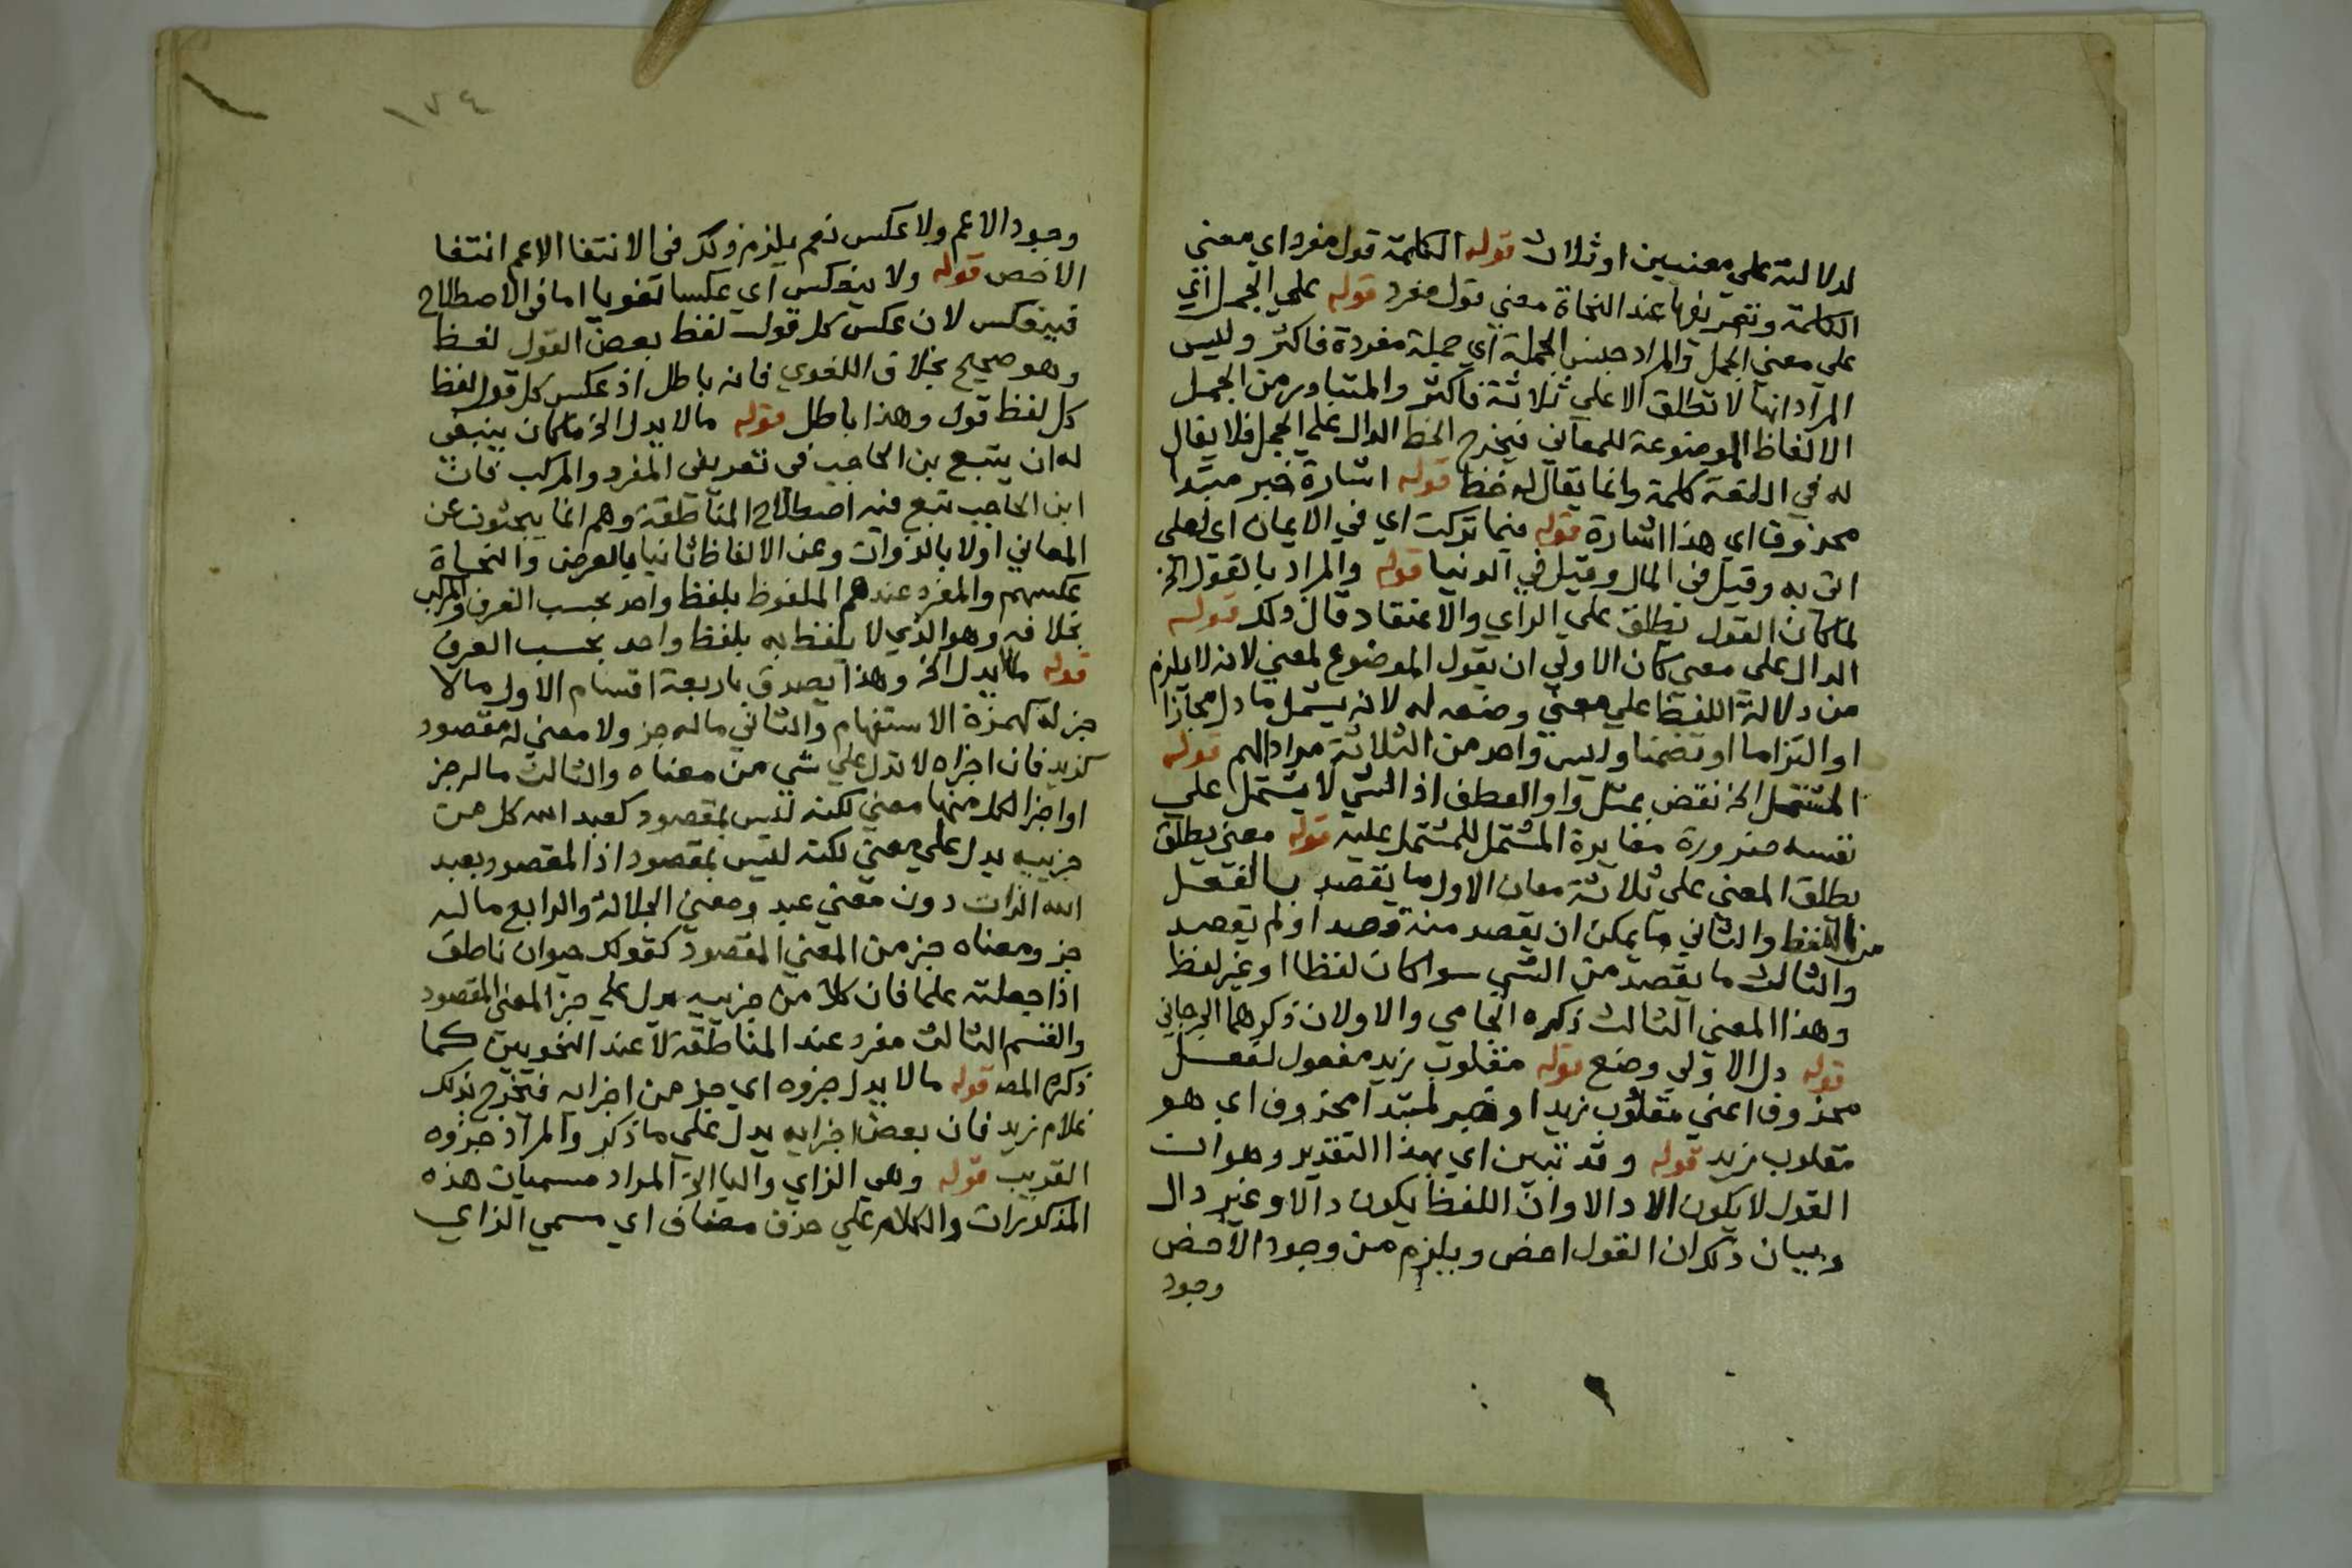 لدلالته على معنيين او ثلاث قوله الكلمة قول مفرد اي معني
الكلمة وتعريفها عند النحاة معني قول مفرد قوله علي الجمل اي
علي معني الجمل والمراد جنس الجملة اي جملة مفردة فاكثر وليس
المراد انها لا تطلق الا علي ثلاثة فاكثر والمتبادر من الجمل
الالفاظ الموضوعة للمعاني فيخرج الخط الدال على الجمل فلا يقال
له في اللغة كلمة وانما يقال له خط قوله اشارة خبر مبتدا
محذوف اي هذا اشارة قوله فيما تركت اي في الايمان اي لعلي
اتى به وقيل في المال وقيل في الدنيا قوله والمراد بالقول الخ
لما كان القول يطلق علي الراي والاعتقاد قال ذلك قوله
الدال على معنى كان الاولي ان يقول الموضوع لمعني لانه لا يلزم
من دلالة اللفظ علي معني وضعه له لانه يشمل ما دل مجازا
او التزاما او تضمنا وليس واحد من الثلاثة مرادا لهم قوله
المشتمل الخ نقض بمثل واو العطف اذ الشي لا يشتمل علي
نفسه ضرورة مغايرة المشتمل للمشتمل عليه قوله معني يطلق
يطلق المعني على ثلاثة معان الاول ما يقصد بالفعل
من اللفظ والثاني ما يمكن ان يقصد منه قصد او لم يقصد
والثالث ما يقصد من الشي سوا كان لفظا او غير لفظ
وهذا المعني الثالث ذكره الجامي والاولان ذكرهما الجرجاني
قوله دل الاولي وضع قوله مقلوب زيد مفعول لفعل
محذوف اعني مقلوب زيد او خبر لمبتدا محذوف اي هو
مقلوب زيد قوله وقد تبين اي بهذا التقدير وهو ان
القول لا يكون الا دالا وان اللفظ يكون دالا وغير دال
وبيان ذلك ان القول اخص ويلزم من وجود الاخص
وجود
١٧٤
وجود الاعم ولا عكس نعم يلزم ذلك في الانتفا الاعم انتفا
الاخص قوله ولا ينعكس اي عكسا لغويا اما في الاصطلاح
فينعكس لان عكس كل قول لفظ بعض القول لفظ
وهو صحيح بخلاف اللغوي فانه باطل اذ عكس كل قول لفظ
كل لفظ قول وهذا باطل قوله ما لا يدل الخ ما كان ينبغي
له ان يتبع بن الحاجب في تعريف المفرد والمركب فان
ابن الحاجب تبع فيه اصطلاح المناطقة وهم انما يبحثون عن
المعاني اولا بالذوات وعن الالفاظ ثانيا بالعرض والنحاة
عكسهم والمفرد عندهم الملفوظ بلفظ واحد بحسب العرف والمركب
بخلافه وهو الذي لا يلفظ به بلفظ واحد بحسب العرف
قوله ما لا يدل الخ وهذا يصدق باربعة اقسام الاول ما لا
جز له كهمزة الاستفهام والثاني ما له جز ولا معني له مقصود
كزيد فان اجزاه لا تدل علي شي من معناه والثالث ما له جز
او اجزا لكل منها معني لكنه ليس بمقصود كعبد الله كل من
جزييه يدل علي معني لكنه ليس بمقصود اذ المقصود بعبد
الله الذات دون معني عبد ومعني الجلالة والرابع ما له
جز ومعناه جز من المعني المقصود كقولك حيوان ناطق
اذا جعلته علما فان كلا من جزييه يدل على جز المعني المقصود
والقسم الثالث مفرد عند المناطقة لا عند النحويين كما
ذكره المص قوله ما لا يدل جزوه اي جز من اجزايه فيخرج بذلك
غلام زيد فان بعض اجزايه يدل علي ما ذكر والمراد جزوه
القريب قوله وهي الزاي واليا الخ المراد مسميات هذه
المذكورات والكلام علي حذف مضاف اي مسمي الزاي